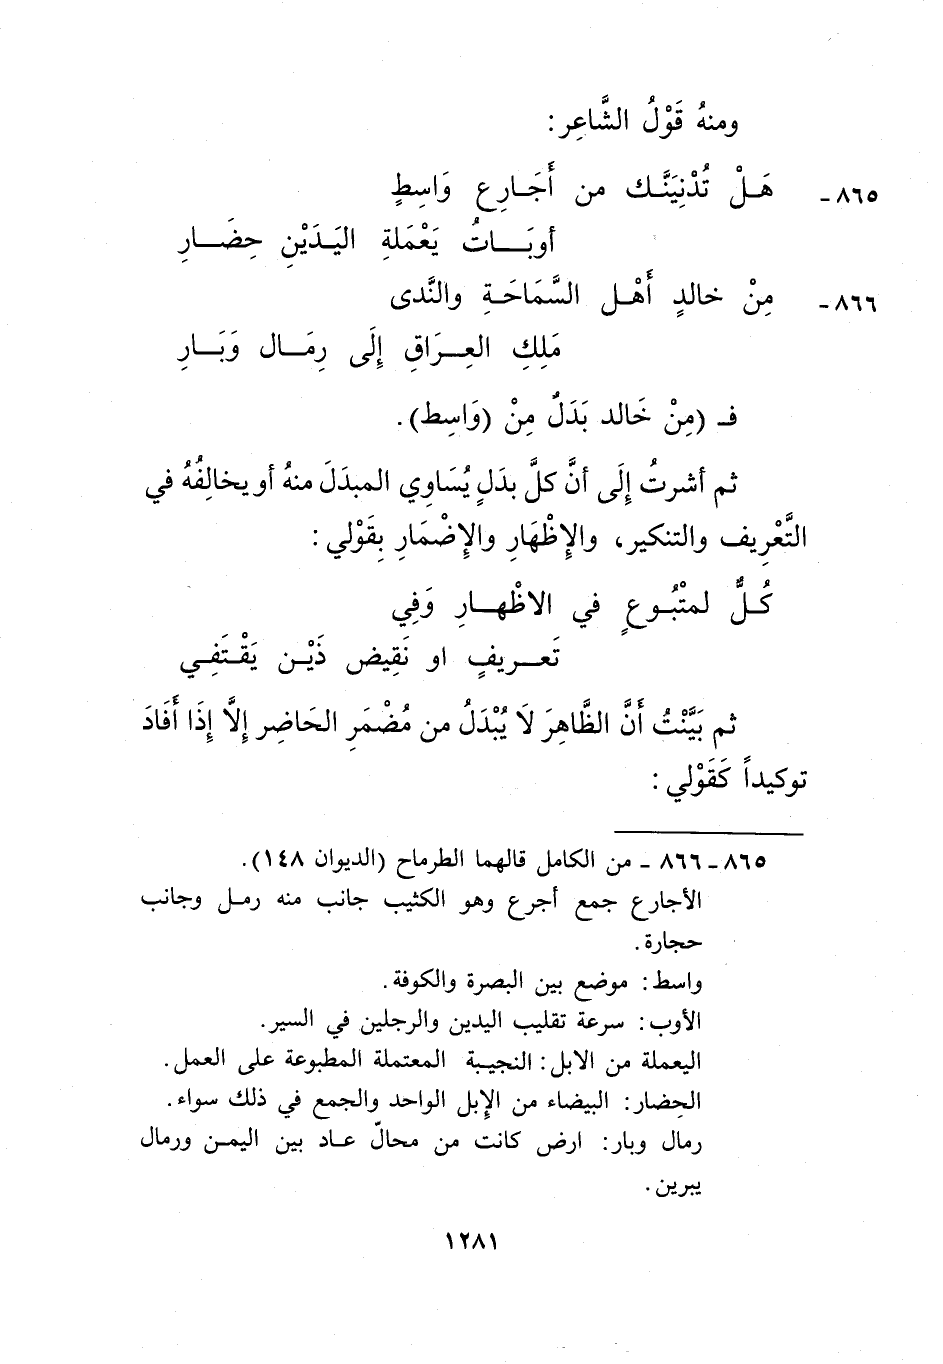 ومنهُ قَوْلُ الشَّاعِر:
٨٦٥ـ هَـلْ تُدْنِيَنَّـك من أَجَـارِع وَاسِطٍ
أوبَـــاتُ يَعْمَلةِ اليَـدَيْنِ حِضَـارِ
٨٦٦ـ مِنْ خالدٍ أَهْـل السَّمَاحَـةِ والنَّدى
مَلِكِ العِـرَاقِ إلَى رِمَـال وَبَـارِ
فـ (مِنْ خَالد بَدَلٌ مِنْ (وَاسِط).
ثم أشرتُ إلَى أنَّ كلَّ بدَلٍ يُسَاوِي المبدَلَ منهُ أو يخالِفُهُ في
التَّعْرِيف والتنكير، والإظْهَارِ والإضْمَارِ بِقَوْلي:
كُـلٌّ لمتْبُـوعٍ في الاظْهـارِ وَفِي
تَعـرِيفٍ او نَقِيض ذَيْـن يَقْـتَفِـي
ثم بَيَّنْتُ أَنَّ الظَّاهِرَ لَا يُبْدَلُ من مُضْمَرِ الحَاضِر إلَّا إذَا أَفَادَ
توكيداً كَقَوْلي:
٨٦٥ـ ٨٦٦ ـ من الكامل قالهما الطرماح (الديوان ١٤٨).
الأجارع جمع أجرع وهو الكثيب جانب منه رمـل وجانب
حجارة.
واسط: موضع بين البصرة والكوفة.
الأوب: سرعة تقليب اليدين والرجلين في السير.
اليعملة من الابل: النجيبة المعتملة المطبوعة على العمل.
الحِضار: البيضاء من الإبل الواحد والجمع في ذلك سواء.
رمال وبار: ارض كانت من محالّ عـاد بين اليمـن ورمال
يبرين.
١٢٨١